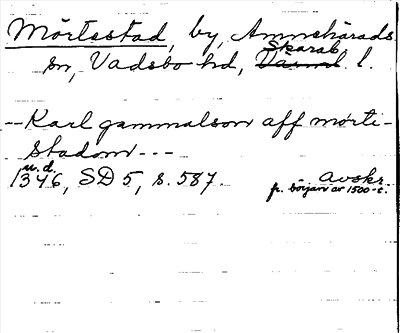 Mörtestad, by, Amnehärads
sn, Vadsbo hd, Skarab. l.
-- Karl gammalson aff mörti-
stadom ---
u.d.
1346, SD 5, s. 587.
Avskr.
fr. början av 1500-t.